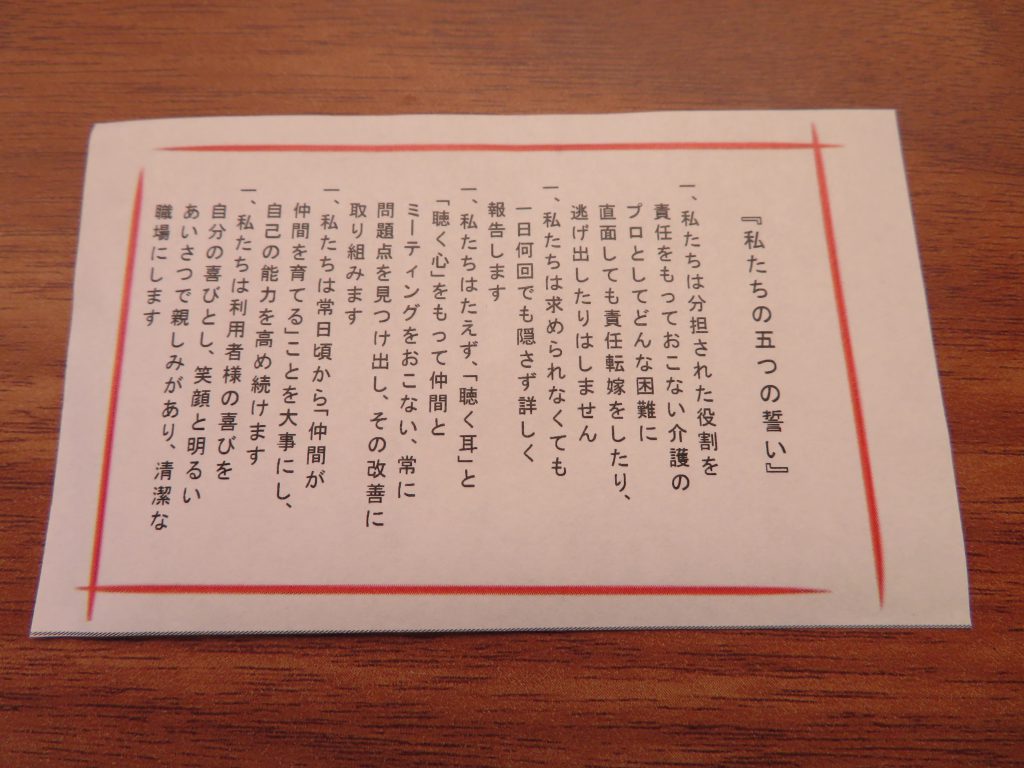 『私たちの五つの誓い』
一、私たちは分担された役割を
責任をもっておこない介護の
プロとしてどんな困難に
直面しても責任転嫁をしたり、
逃げ出したりはしません
一、私たちは求められなくても
一日何回でも隠さず詳しく
報告します
一、私たちはたえず、「聴く耳」と
「聴く心」をもって仲間と
ミーティングをおこない、常に
問題点を見つけ出し、その改善に
取り組みます
一、私たちは常日頃から「仲間が
仲間を育てる」ことを大事にし、
自己の能力を高め続けます
一、私たちは利用者様の喜びを
自分の喜びとし、笑顔と明るい
あいさつで親しみがあり、清潔な
職場にします